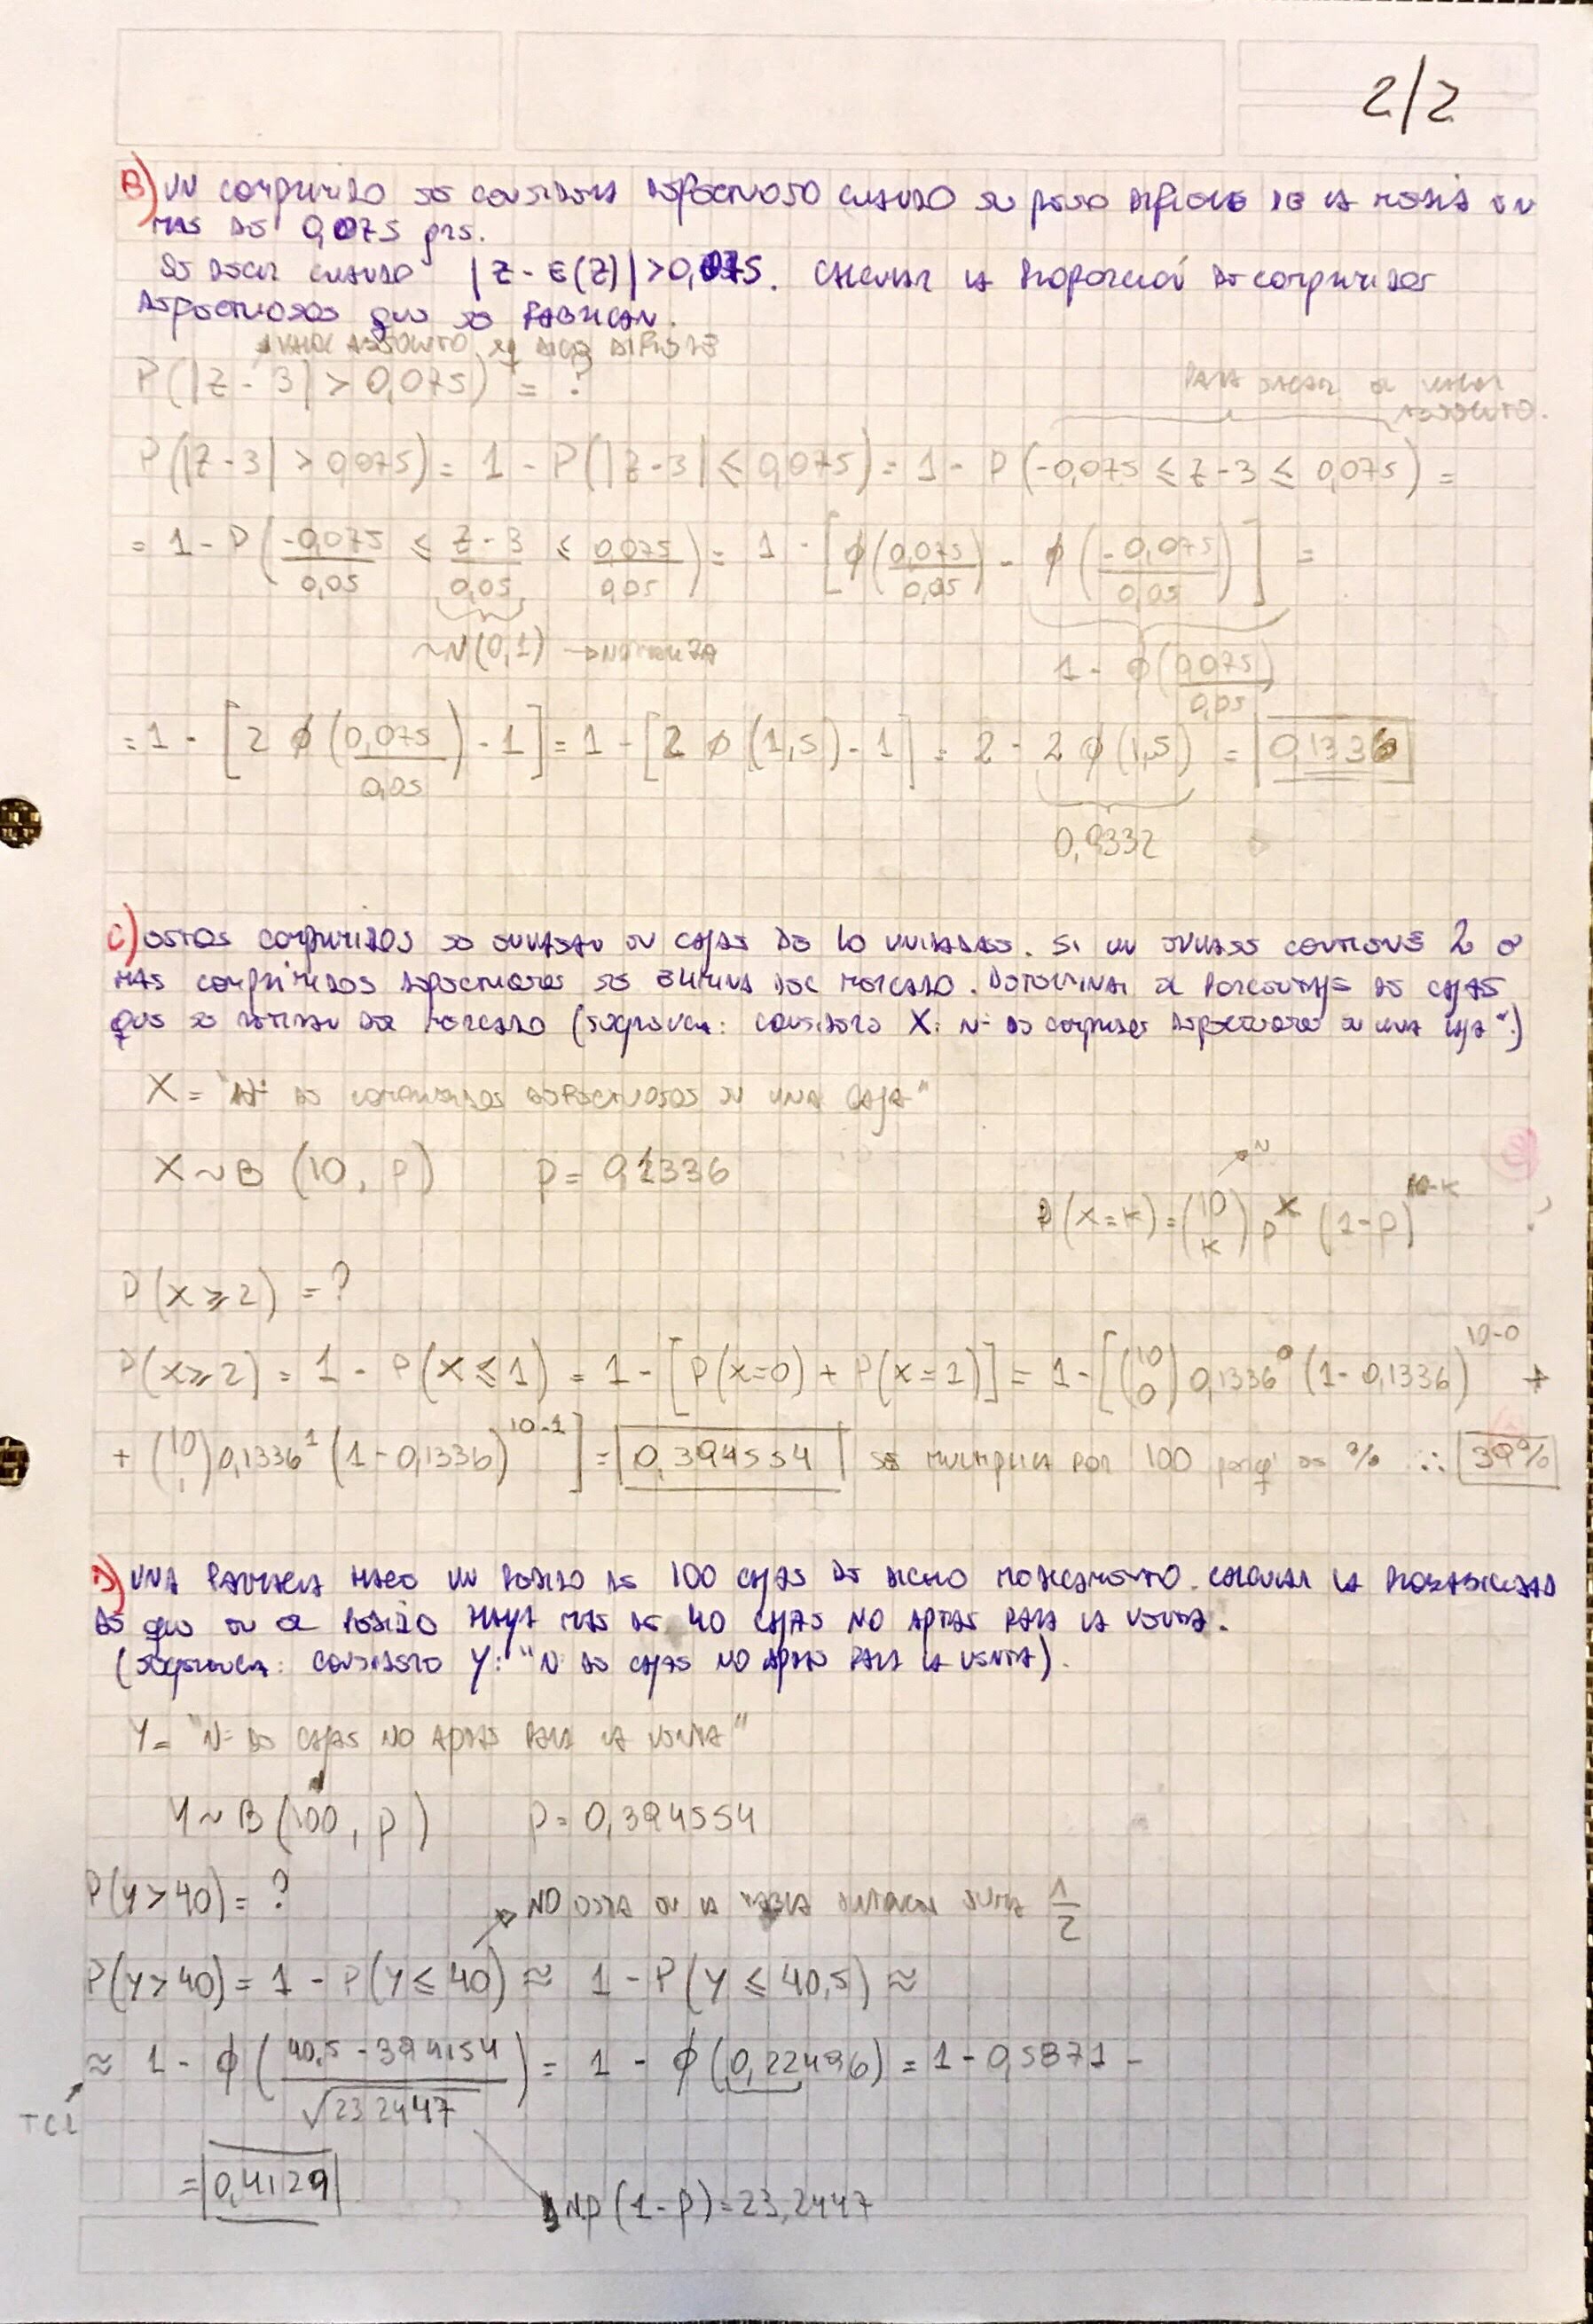 2/2
B) UN COMPRIMIDO SE CONSIDERA DEFECTUOSO CUANDO SU PESO DIFIERE DE LA MEDIA EN
MAS DE 0,075 grs.
ES DECIR CUANDO |Z - E(Z)| > 0,075. CALCULAR LA PROPORCIÓN DE COMPRIMIDOS
DEFECTUOSOS QUE SE FABRICAN.
VALOR ABSOLUTO xq DICE DIFIERE
P(|Z - 3| > 0,075) = ?
PARA SACAR EL VALOR
ABSOLUTO.
P(|Z - 3| > 0,075) = 1 - P(|Z - 3| ≤ 0,075) = 1 - P(-0,075 ≤ Z - 3 ≤ 0,075) =
= 1 - P(-0,075/0,05 ≤ Z - 3/0,05 ≤ 0,075/0,05) = 1 - [ϕ(0,075/0,05) - ϕ(-0,075/0,05)] =
~N(0,1) → NORMALIZA
1 - ϕ(0,075/0,05)
= 1 - [2 ϕ(0,075/0,05) - 1] = 1 - [2 ϕ(1,5) - 1] = 2 - 2 ϕ(1,5) = 0,1336
0,9332
C) ESTOS COMPRIMIDOS SE ENVASAN EN CAJAS DE 10 UNIDADES. SI UN ENVASE CONTIENE 2 O
MAS COMPRIMIDOS DEFECTUOSOS SE ELIMINA DEL MERCADO. DETERMINAR EL PORCENTAJE DE CAJAS
QUE SE RETIRAN DEL MERCADO (SUGERENCIA: CONSIDERO X: Nº DE COMPRIMIDOS DEFECTUOSOS EN UNA CAJA".)
X = "Nº DE COMPRIMIDOS DEFECTUOSOS EN UNA CAJA"
X ~ B (10, P) p = 0,1336
N
P(X = K) = (10 K) p^X (1-P)^10-K
P(X ≥ 2) = ?
P(X ≥ 2) = 1 - P(X ≤ 1) = 1 - [P(X=0) + P(X=1)] = 1 - [(10 0) 0,1336^0 (1 - 0,1336)^10-0 +
+ (10 1) 0,1336^1 (1 - 0,1336)^10-1] = 0,394554 SE MULTIPLICA POR 100 porq' ES % ∴ 39%
D) UNA FARMACIA HACE UN PEDIDO DE 100 CAJAS DE DICHO MEDICAMENTO. CALCULAR LA PROBABILIDAD
DE QUE EN EL PEDIDO HAYA MAS DE 40 CAJAS NO APTAS PARA LA VENTA.
(SUGERENCIA: CONSIDERO Y: "Nº DE CAJAS NO APTAS PARA LA VENTA).
Y = "Nº DE CAJAS NO APTAS PARA LA VENTA"
Y ~ B (100, P) p = 0,394554
P(Y > 40) = ?
NO ESTA EN LA TABLA ENTONCES SUMA 1/2
P(Y > 40) = 1 - P(Y ≤ 40) ≈ 1 - P(Y ≤ 40,5) ≈
≈ 1 - ϕ(40,5 - 39,4154/√23,2447) = 1 - ϕ(0,22496) = 1 - 0,5871 -
TCL
= 0,4129
NP(1 - P) = 23,2447